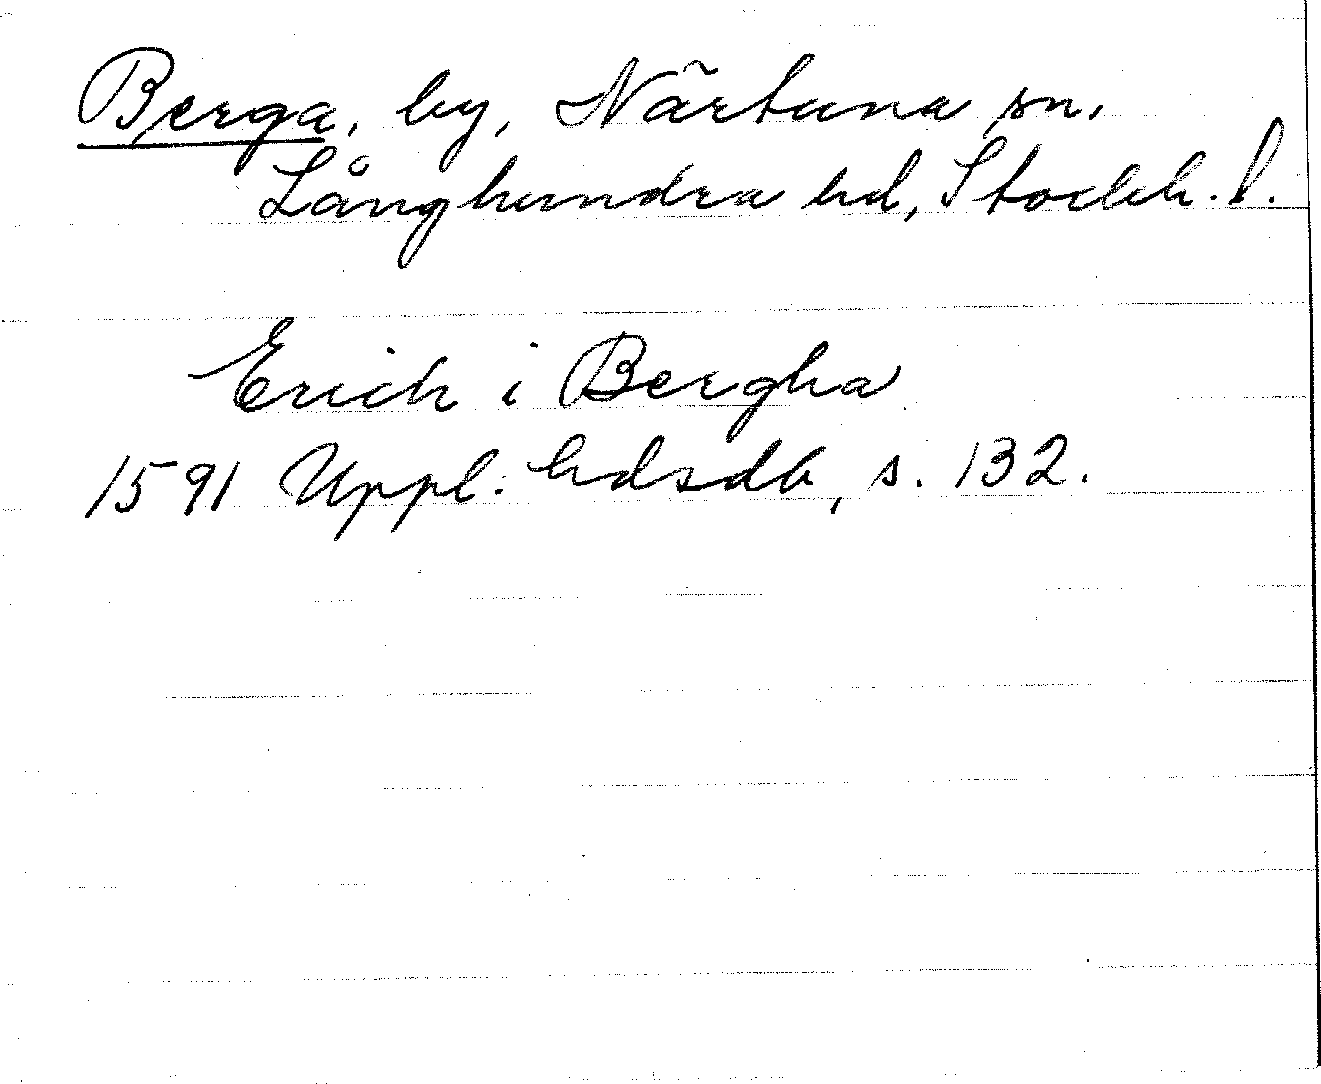 Berga, by, Närtuna sn.
Långhundra hd, Stockh. l.
Erich i Bergha
1591 Uppl. hdsdb, s. 132.